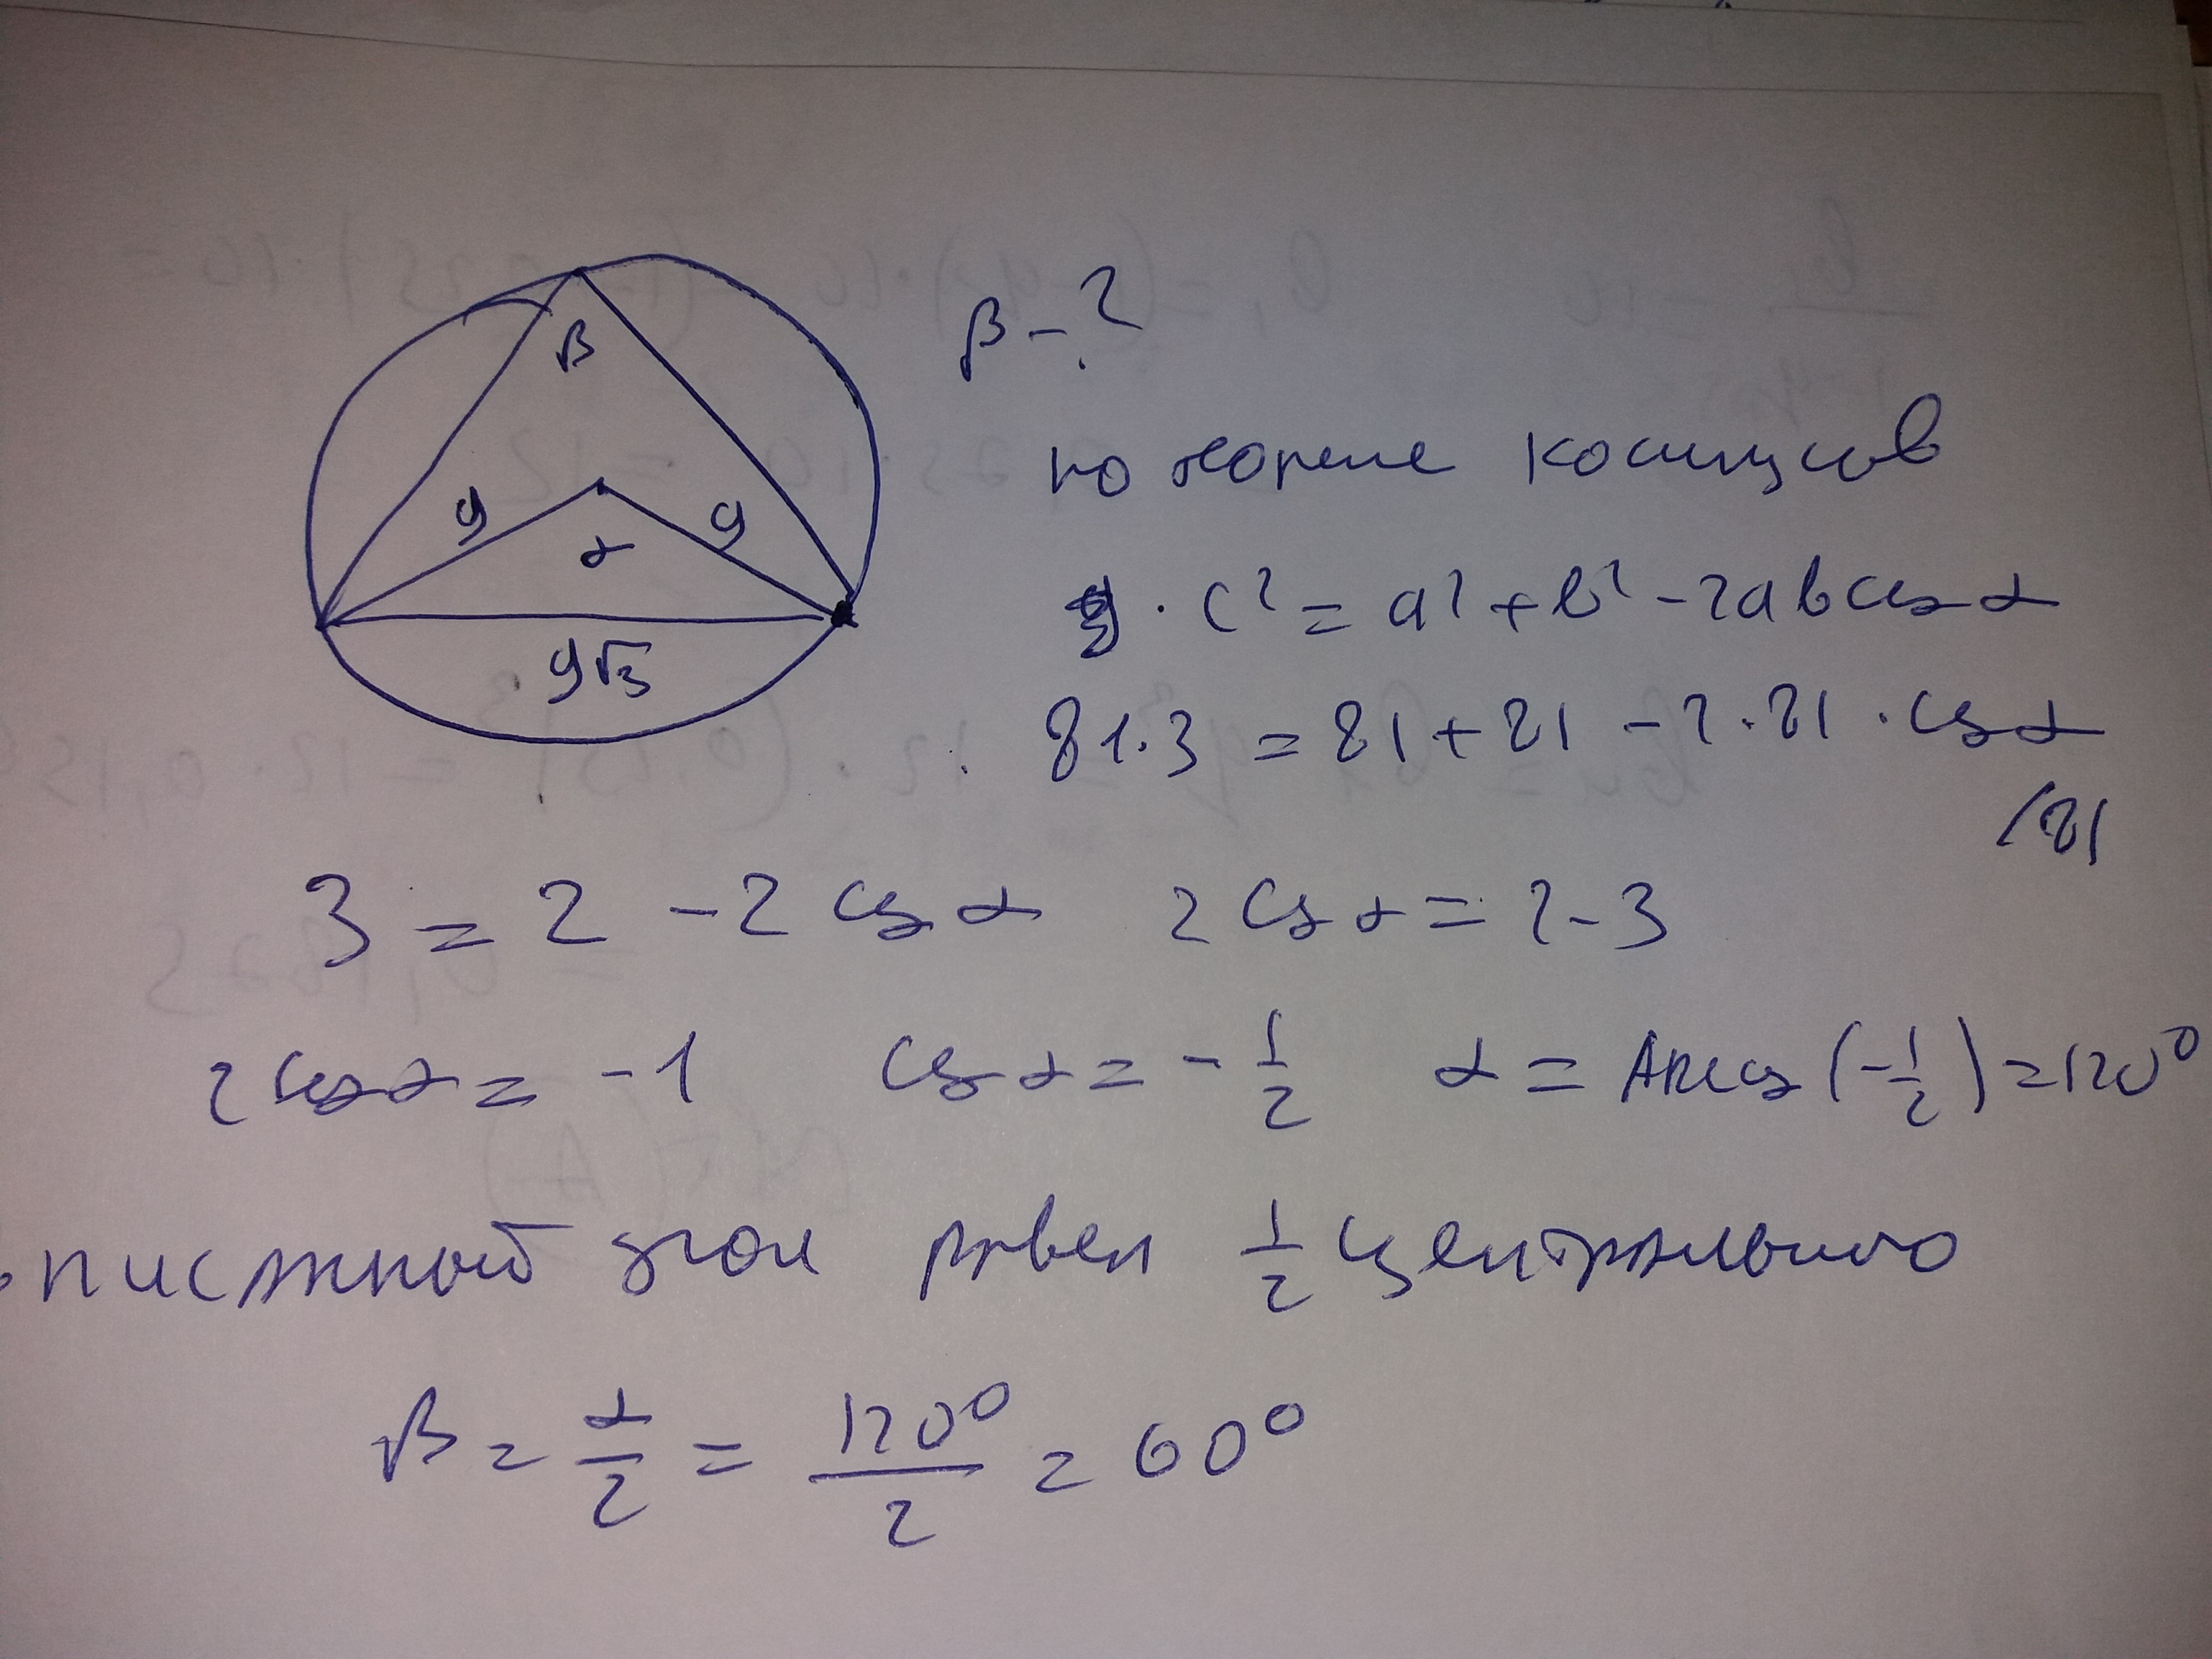 β
9 α 9
9√3
β - ?
по теореме косинусов
c² = a² + b² - 2ab cos α
81·3 = 81 + 81 - 2·81·cos α
/81
3 = 2 - 2 cos α 2 cos α = 2 - 3
2 cos α = -1 cos α = - 1/2 α = Arccos (-1/2) = 120°
вписанный угол равен 1/2 центрального
β = α/2 = 120°/2 = 60°